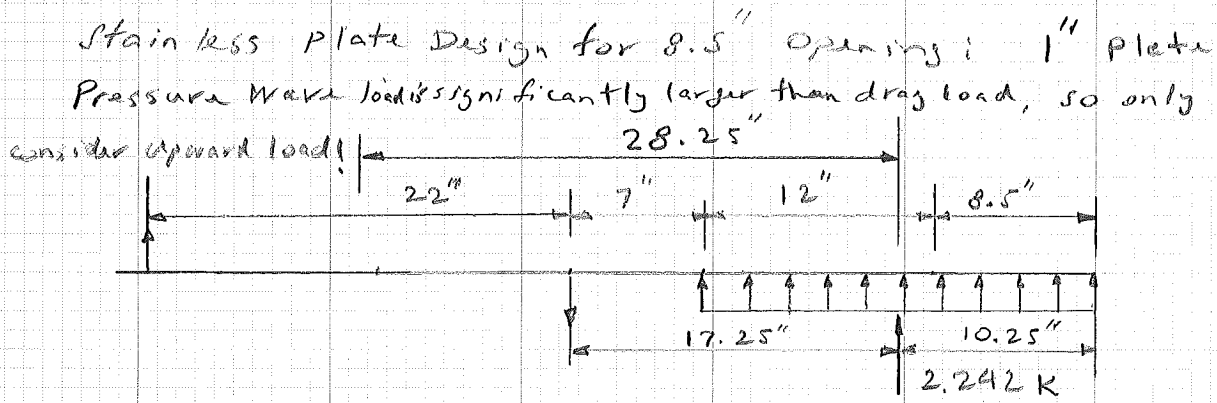 Stainless Plate Design for 8.5" Opening: 1" Plate
Pressure Wave load is significantly larger than drag load, so only
consider upward load!
28.25"
22" 7" 12" 8.5"
17.25" 10.25"
2.242 K